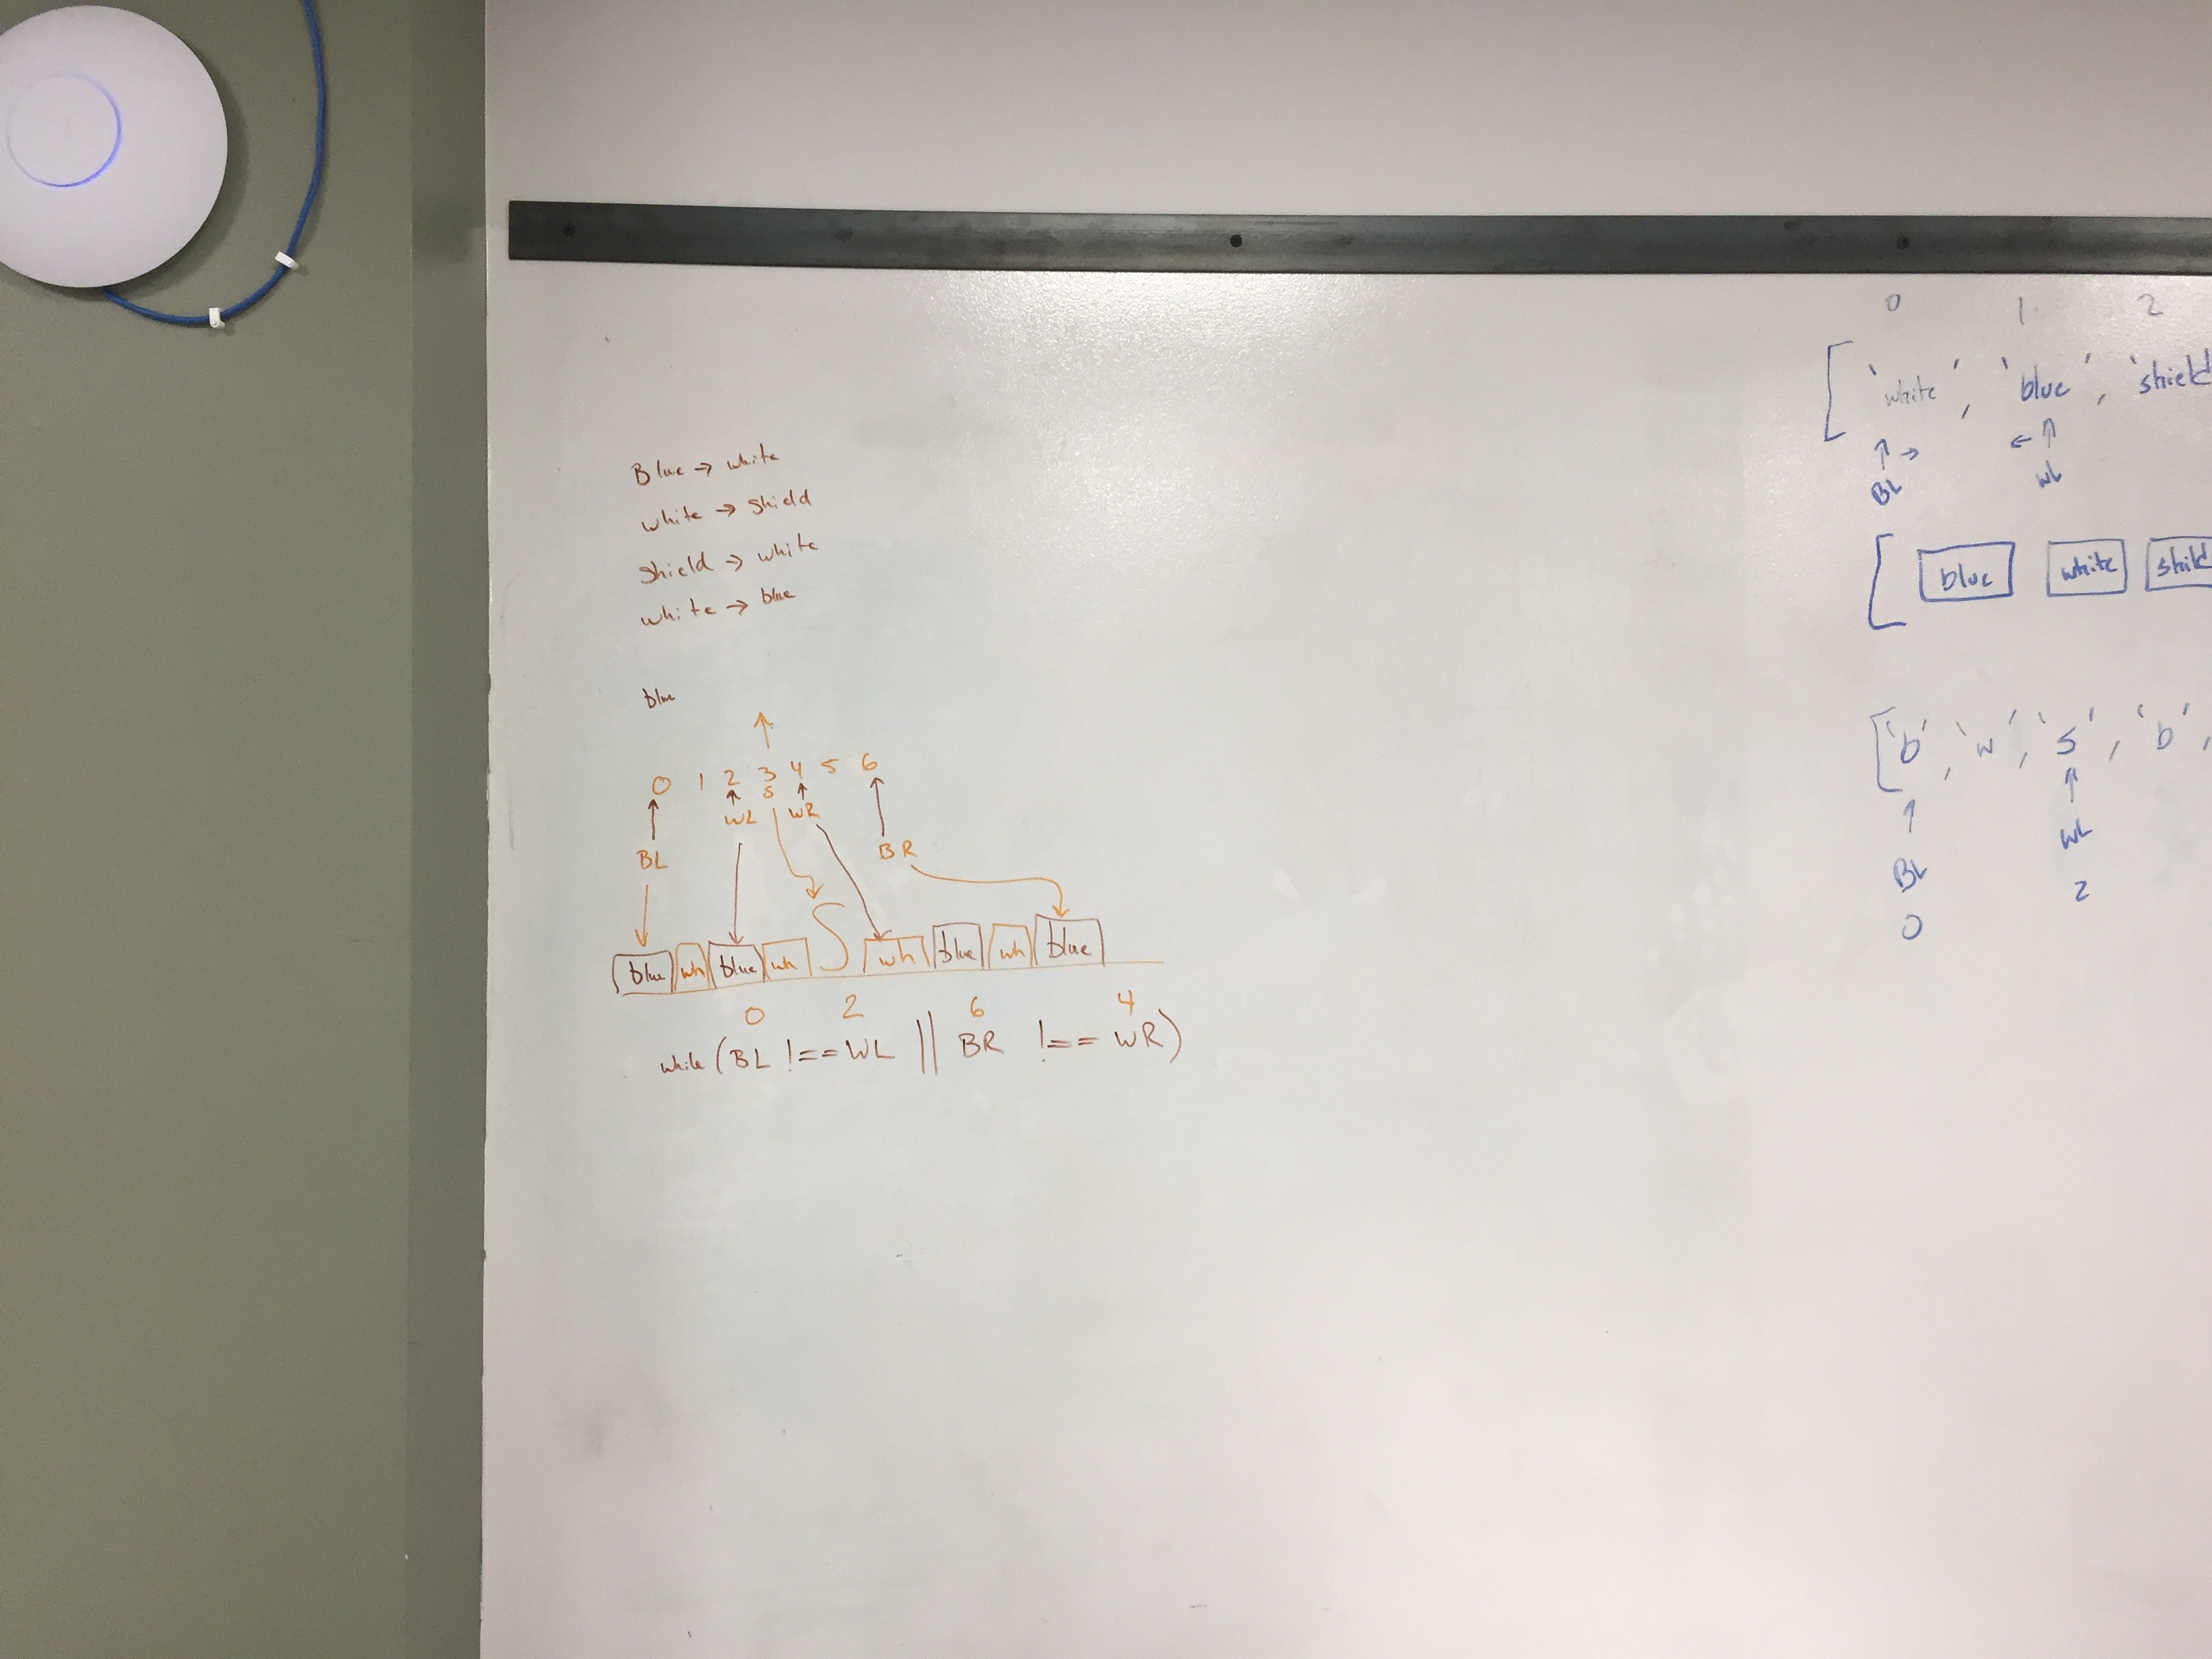 Blue → white
white → shield
shield → white
white → blue
blue
↑
0 1 2 3 4 5 6
↑ ↑ s ↑ ↑
WL WR
BL BR
blue wh blue wh S wh blue wh blue
0 2 6 4
while (BL !== WL || BR !== WR)
0 1 2
[ 'white', 'blue', 'shield
↑→ ←↑
BL WL
[ blue white
['b', 'w', 's', 'b',
↑ ↑
BL WL
0 2